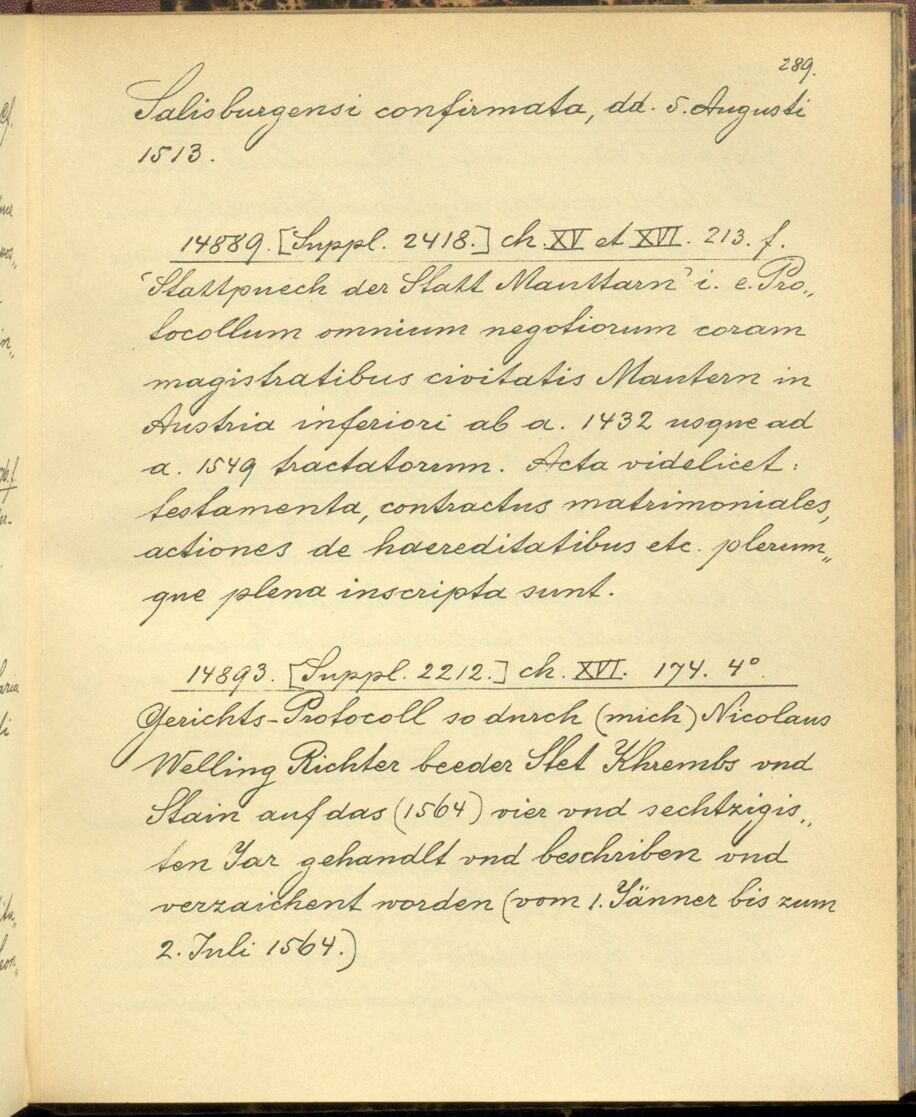 289.
Salisburgensi confirmata, dd. 5. Augusti
1513.
14889. [Suppl. 2418.] ch. XV et XVI. 213. f.
'Stattpuech der Statt Mauttarn' i. e. Pro„
tocollum omnium negotiorum coram
magistratibus civitatis Mautern in
Austria inferiori ab a. 1432 usque ad
a. 1549 tractatorum. Acta videlicet:
testamenta, contractus matrimoniales,
actiones de haereditatibus etc. plerum„
que plena inscripta sunt.
14893. [Suppl. 2212.] ch. XVI. 174. 4°.
Gerichts-Protocoll so durch (mich) Nicolaus
Welling Richter beeder Stet Khrembs vnd
Stain auf das (1564) vier vnd sechtzigis„
ten Jar gehandlt vnd beschriben vnd
verzaichent worden (vom 1. Jänner bis zum
2. Juli 1564.)